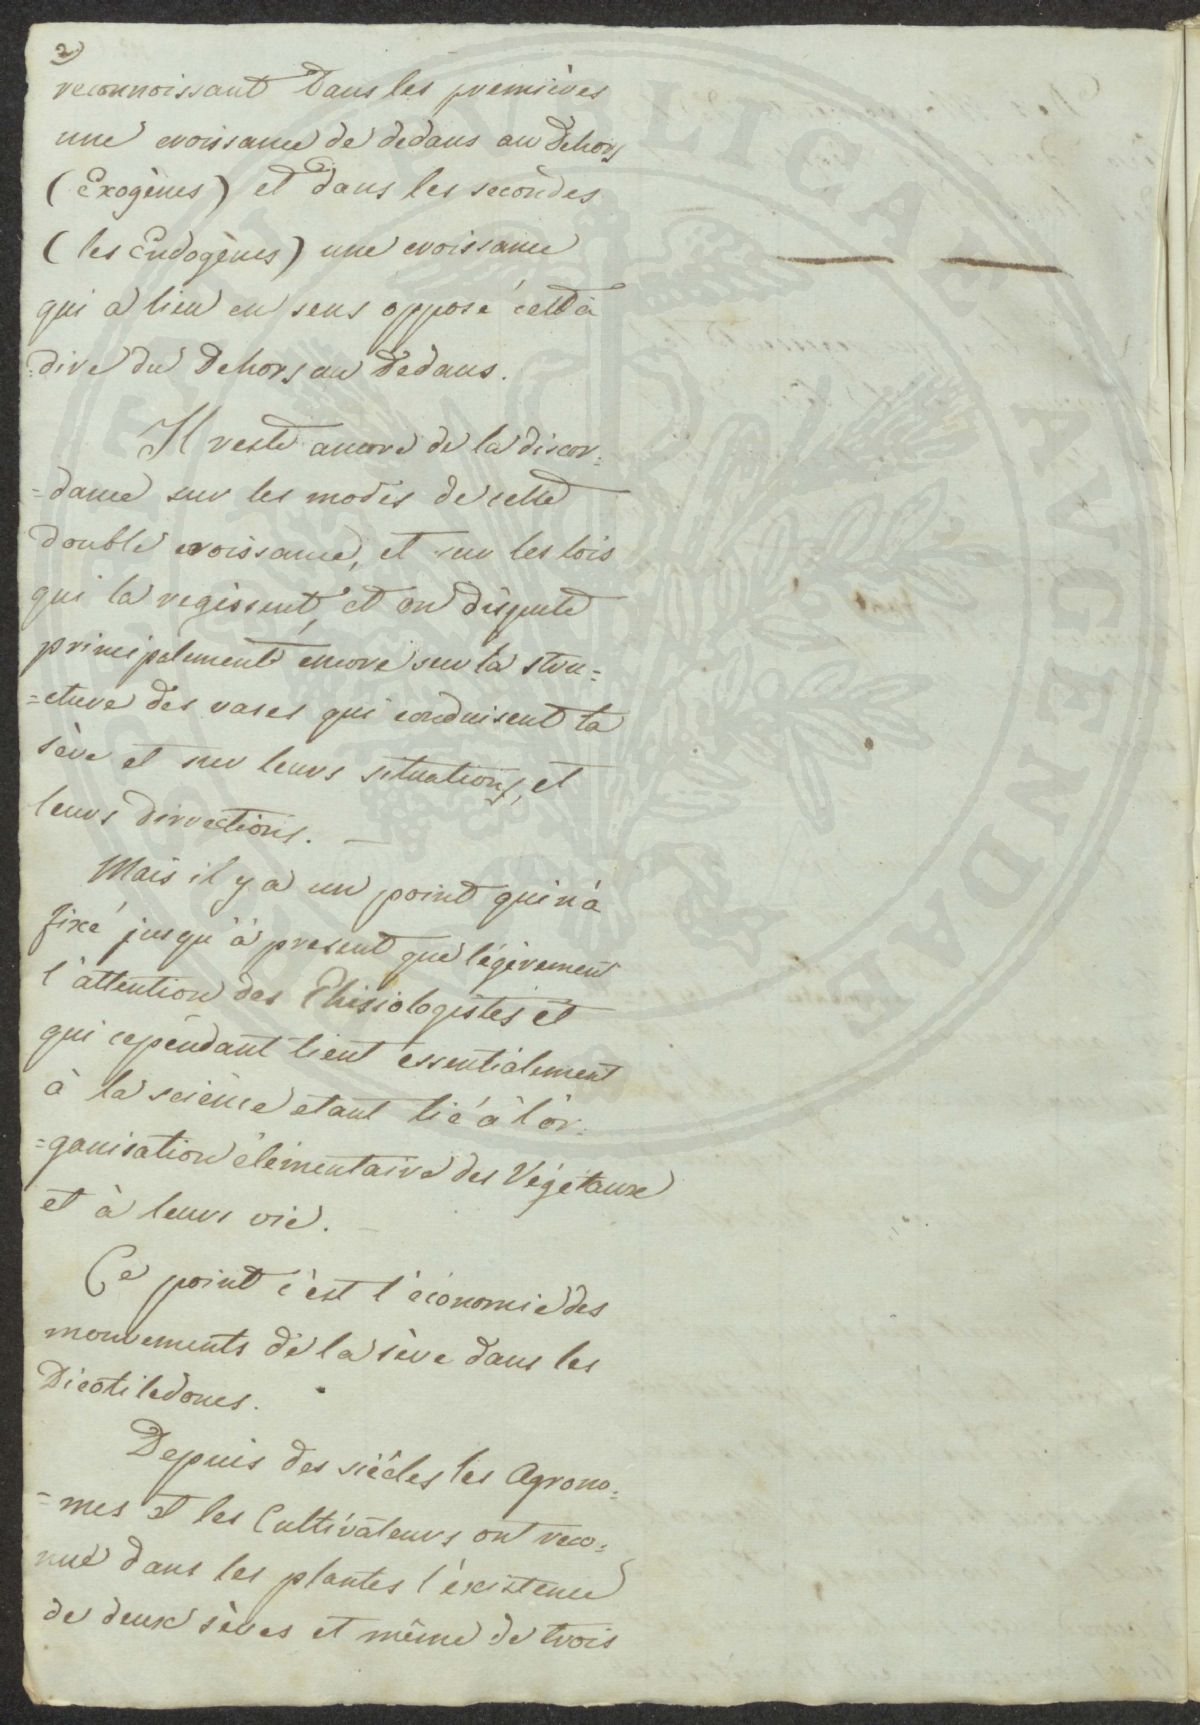 2)
reconnoissant dans les premières
une croissance de dedans au dehors
(Exogènes) et dans les secondes
(les Endogènes) une croissance
qui a lieu en sens opposé cett à
=dire du dehors au dedans.
Il reste ancore de la discor=
=dance sur les modes de cette
double croissance, et sur les lois
qui la regissent, et on dispute
principalement encore sur la stru=
=cture des vases qui conduisent la
sève et sur leurs situations, et
leurs dirrections. —
Mais il y a un point qui n'a
fixé jusqu'à present que légérement
l'attention des Phisiologistes et
qui cependant tient essentialement
à la science etant lié à l'or=
=ganisation élementaire des Végétaux
et à leurs vie. —
Ce point c'est l'économie des
mouvements de la sève dans les
Dicotiledones.
Depuis des siècles les Agrono=
=mes et les Cultivateurs ont reco=
nue dans les plantes l'existence
de deux sèves et même de trois
PUBLICAE AVGENDAE